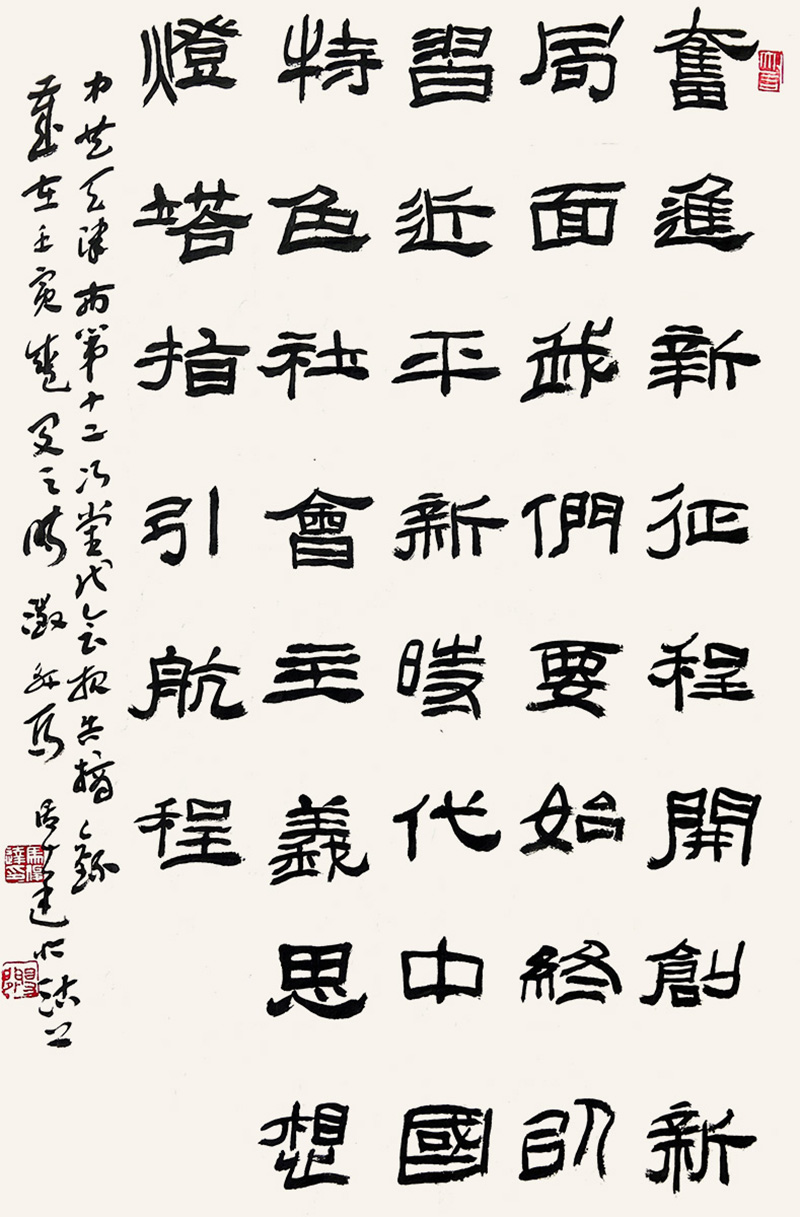 奮進新征程開創新
局面我們要始終以
習近平新時代中國
特色社會主義思想
燈塔指引航程
中共天津市第十二次黨代會報告摘錄
歲在壬寅盛夏之時